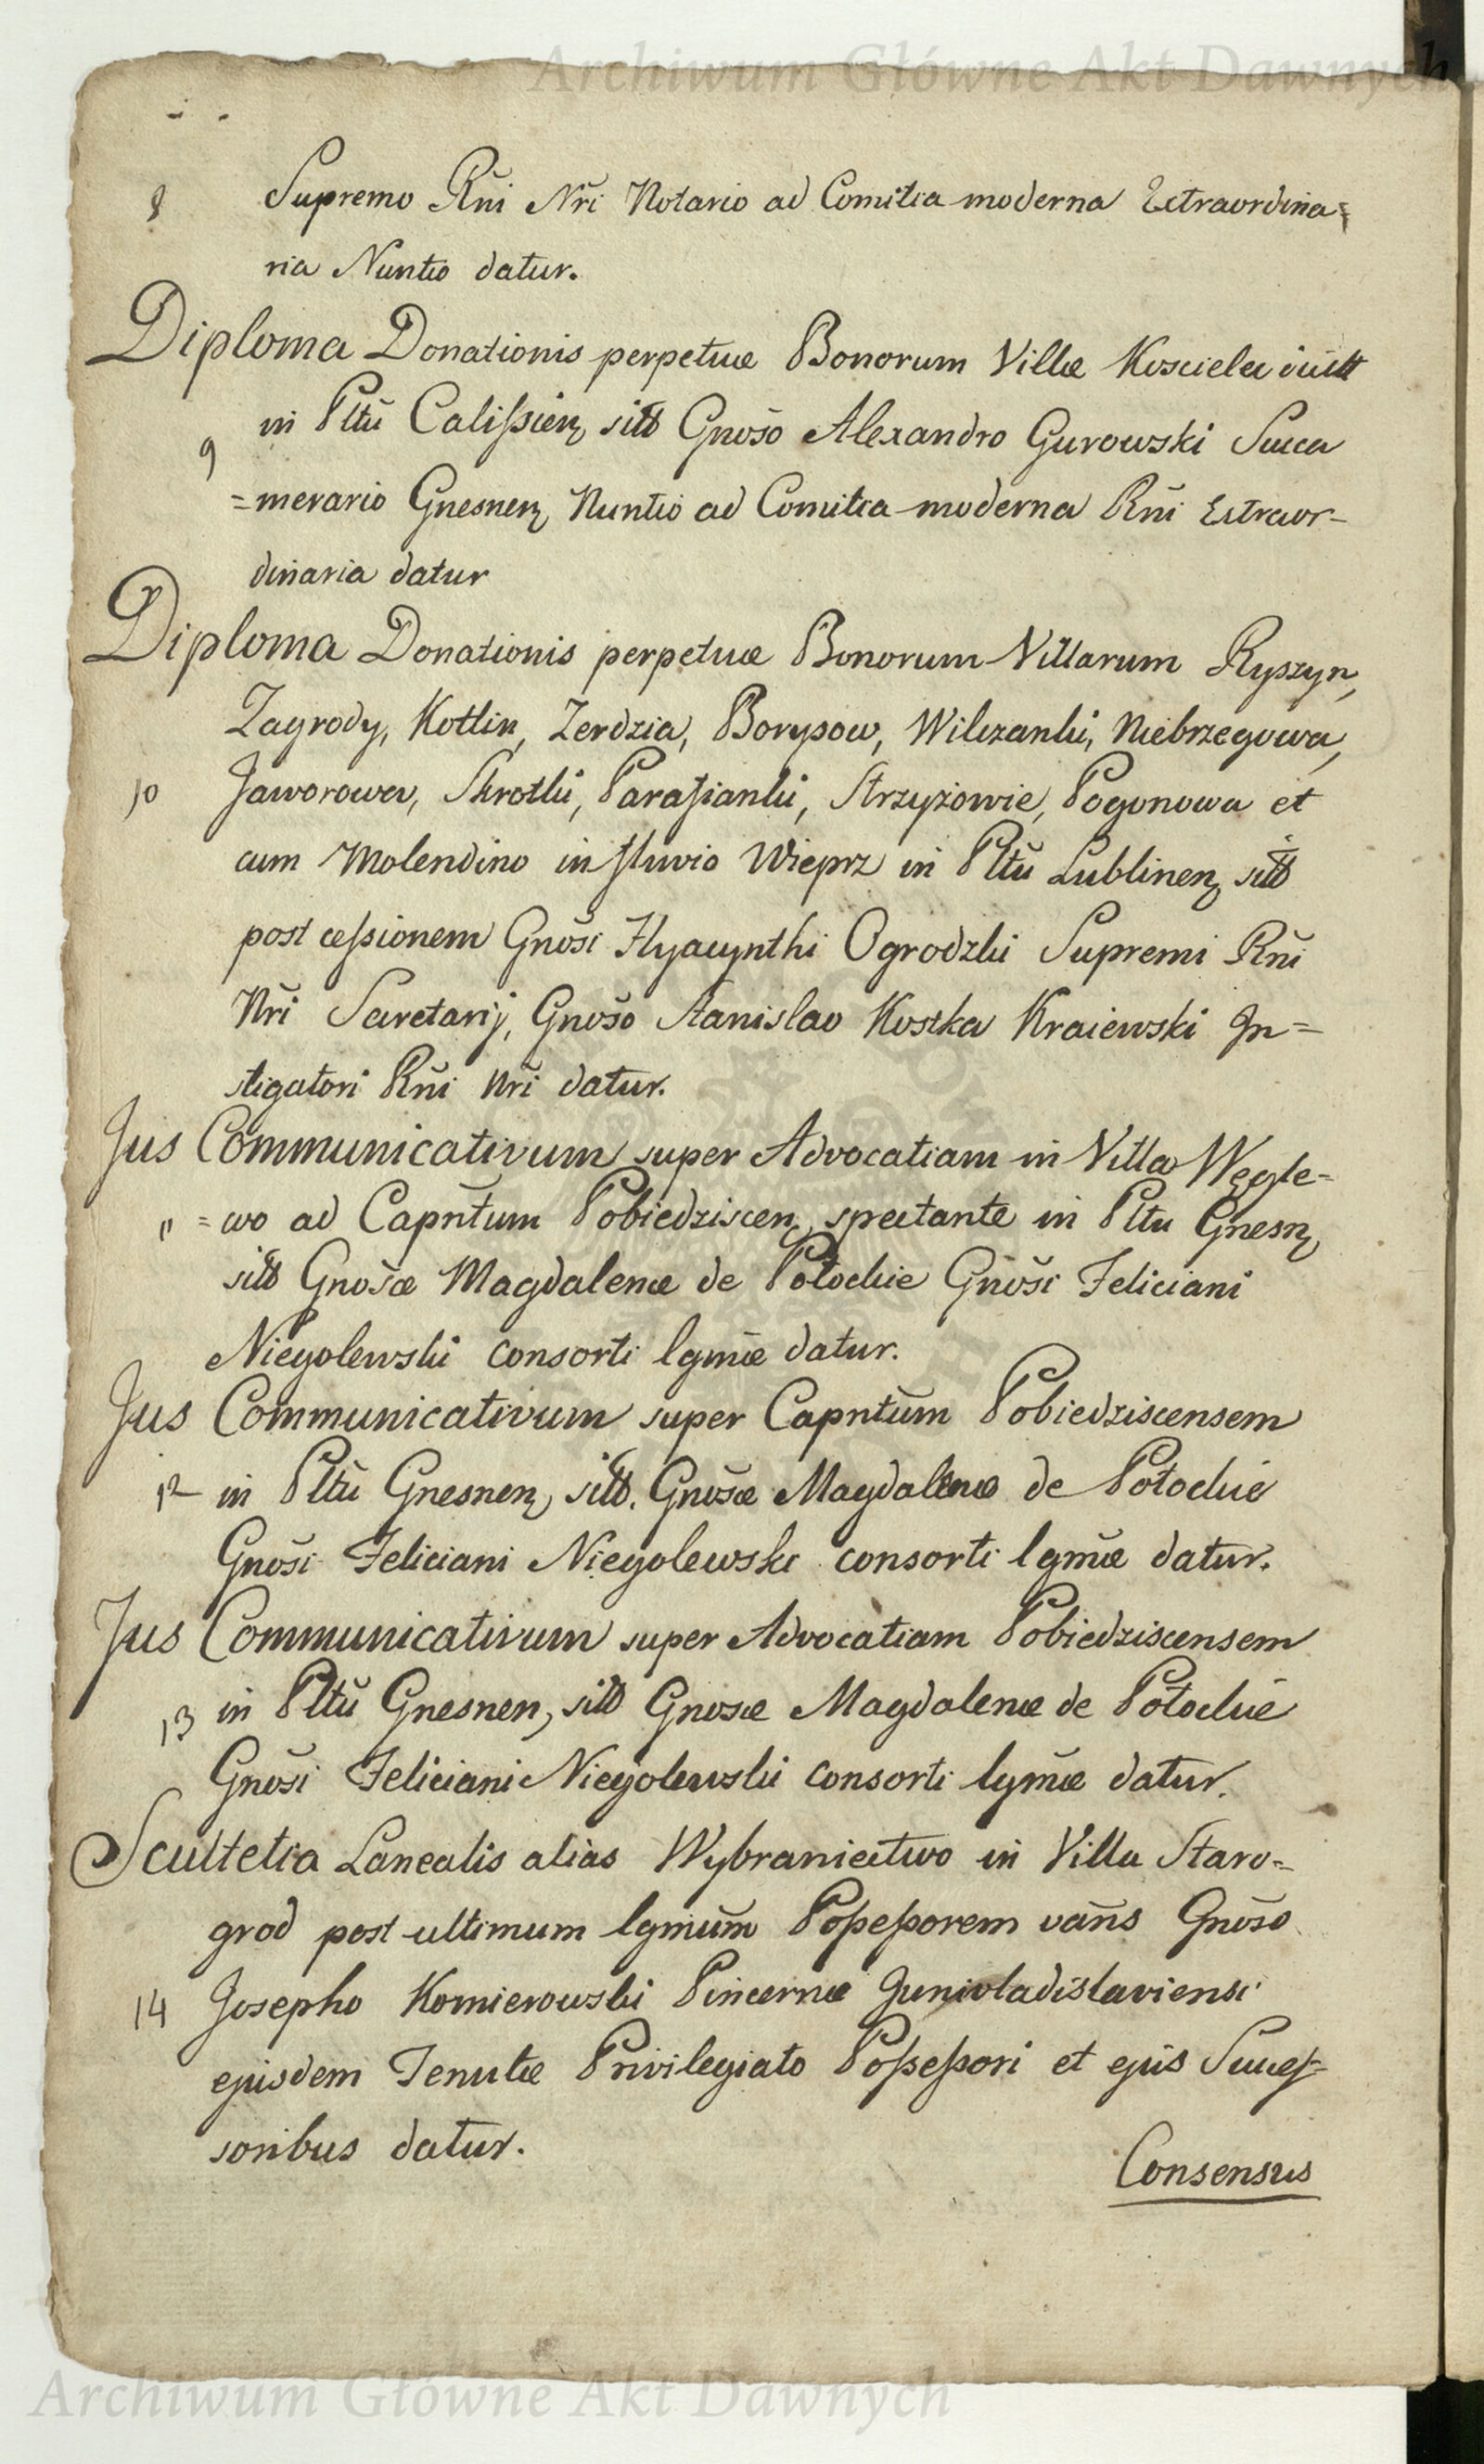 Archiwum Główne Akt Dawnych
8 Supremo Rñi Nři Notario ad Comitia moderna Extraordina=
ria Nuntio datur.
Diploma Donationis perpetuæ Bonorum Villæ Koscielec
in Pltũ Calissien, sitt Gnõso Alexandro Gurowski Succa
9 =merario Gnesnen, Nuntio ad Comitia moderna Rñi Extraor-
dinaria datur
Diploma Donationis perpetuæ Bonorum Villarum Ryszyn,
Zagrody, Kotlin, Zerdzia, Borysow, Wilczanki, Niebrzegowa,
10 Jaworowa, Skrotki, Parafianki, Strzyżowie, Pogonowa et
cum Molendino in fluvio Wieprz in Pltũ Lublinen, sitt
post cessionem Gnõsi Hyacynthi Ogrodzki Supremi Rñi
Nři Secretarij, Gnõso Stanislao Kostka Kraiewski In=
stigatori Rñi Nři datur.
Jus Communicativum super Advocatiam in Villa Węgle=
11 =wo ad Capñtum Pobiedziscen, spectante in Pltu Gnesn,
sitt Gnõsæ Magdalenæ de Potockie Gnõsi Feliciani
Niegolewski consorti lgmæ datur.
Jus Communicativum super Capñtum Pobiedziscensem
12 in Pltũ Gnesnen, sitt. Gnõsæ Magdalenæ de Potockie
Gnõsi Feliciani Niegolewski consorti lgmæ datur.
Jus Communicativum super Advocatiam Pobiedziscensem
13 in Pltũ Gnesnen, sitt Gnosæ Magdalenæ de Potockie
Gnõsi Feliciani Niegolewski consorti lgmæ datur.
Scultetia Lanealis aliàs Wybraniectwo in Villa Staro=
grod post ultimum lgmũm Possessorem vañs Gnõso
14 Josepho Komierowski Pincernæ Junivladislaviensi
ejusdem Tenutæ Privilegiato Possessori et ejus Succes=
soribus datur.
Consensus
Archiwum Główne Akt Dawnych